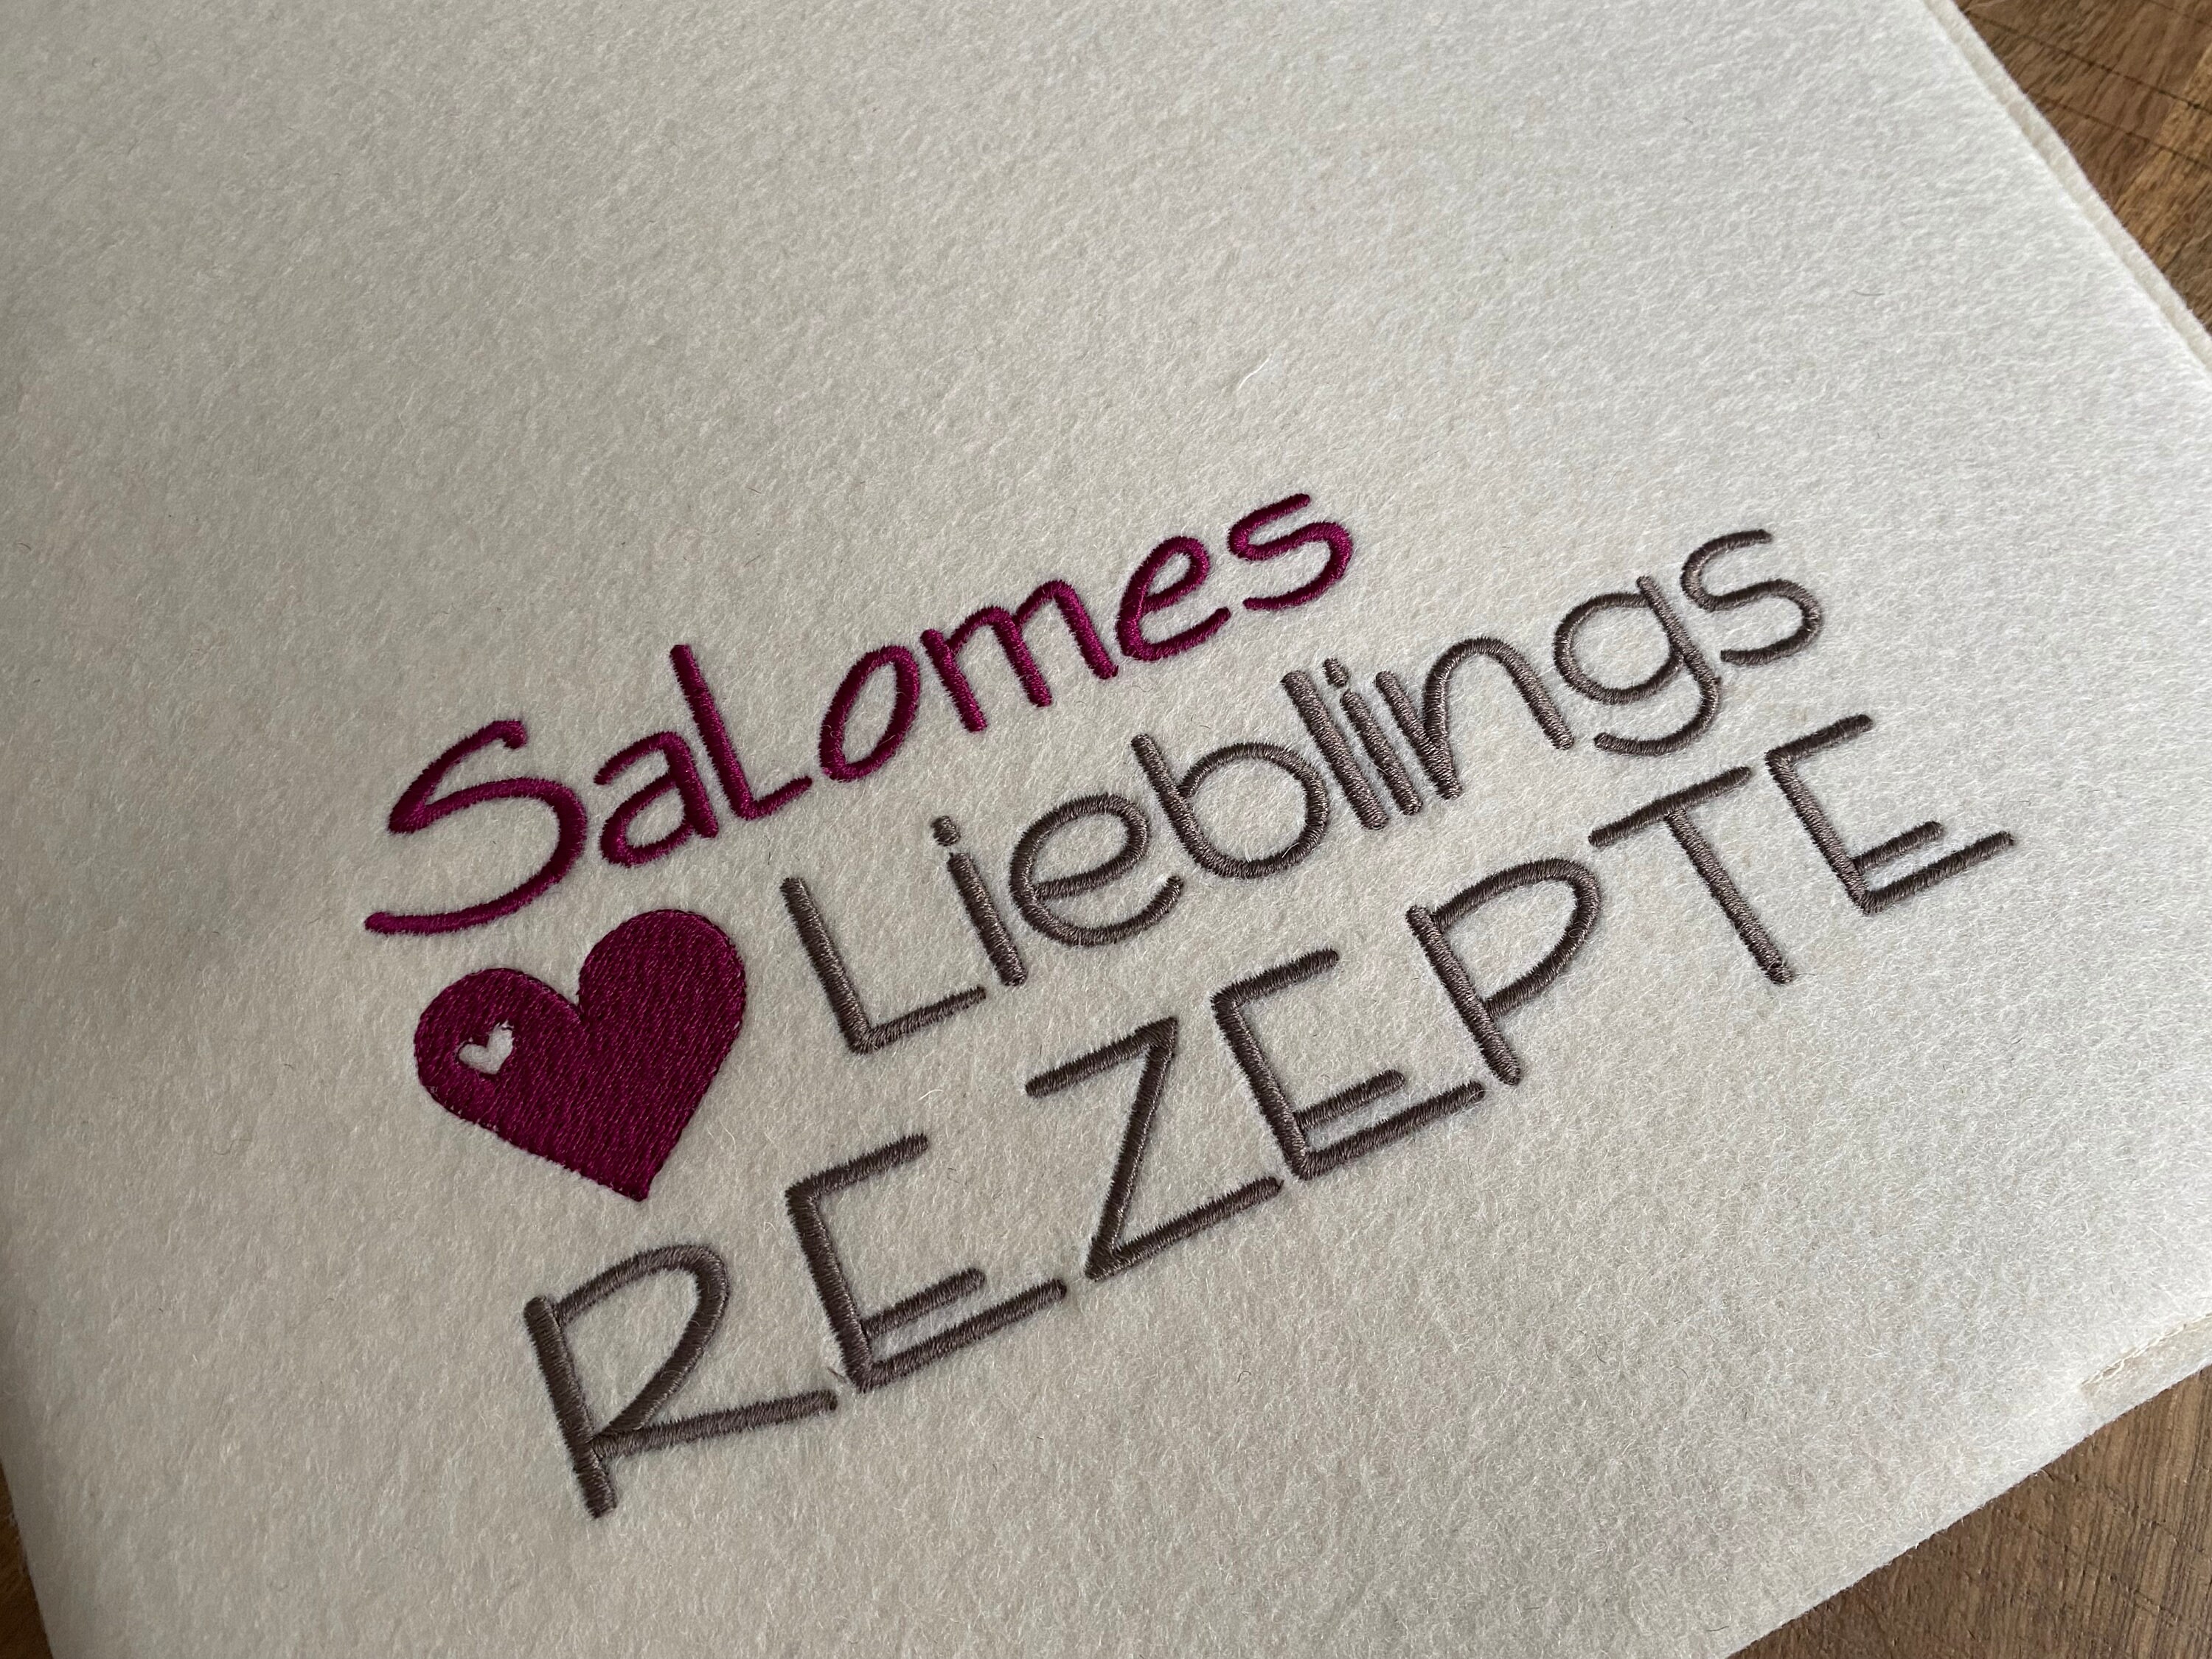 SaLomes
Lieblings
REZEPTE